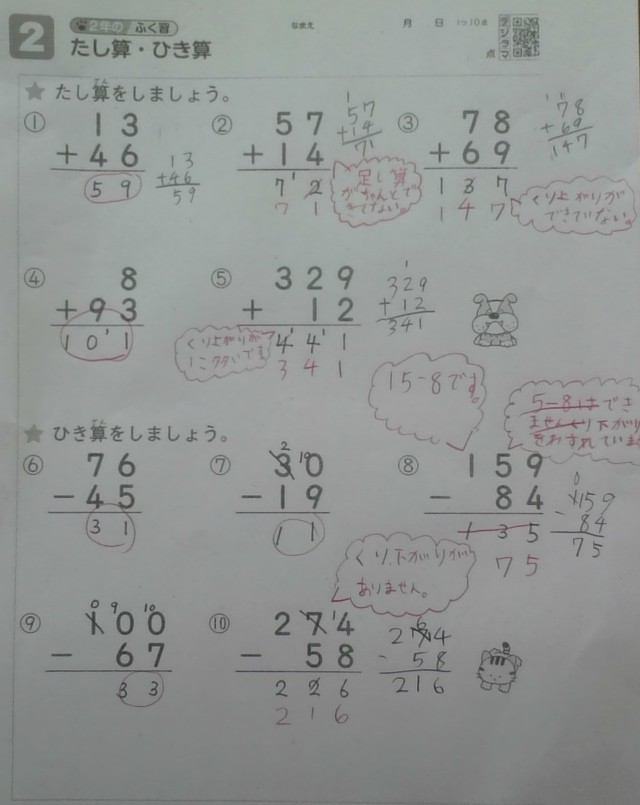 2 2年の ふく習 なまえ 月 日 1つ10点
たし算・ひき算 点 デジタマ
★ たし算をしましょう。
① 13 + 46 59
13 + 46 59
② 57 + 14 72 71
57 + 14 71
足し算がちゃんとできてない。
③ 78 + 69 137 147
78 + 69 147
くり上がりができていない。
④ 8 + 93 101
⑤ 329 + 12 441 341
329 + 12 341
くり上がりが
15-8です。
5-8はできません
くり下がりをわすれています
★ ひき算をしましょう。
⑥ 76 - 45 31
⑦ 30 - 19 11
2 10
⑧ 159 - 84 135 75
0
159 - 84 75
くり下がりがありません。
⑨ 100 - 67 33
0 9 10
⑩ 274 - 58 226 216
274 - 58 216